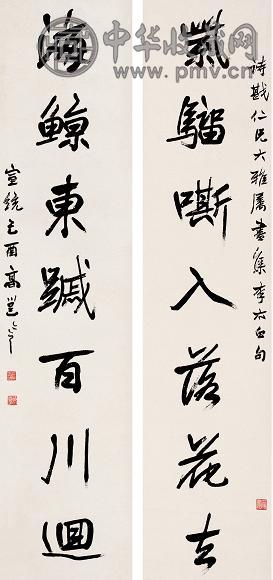 中华收藏网
www.pmv.cn
戡仁兄大雅屬書集李太白句
紫騮嘶入落花去
海鯨東䠞百川迴
宣統己酉高邕之